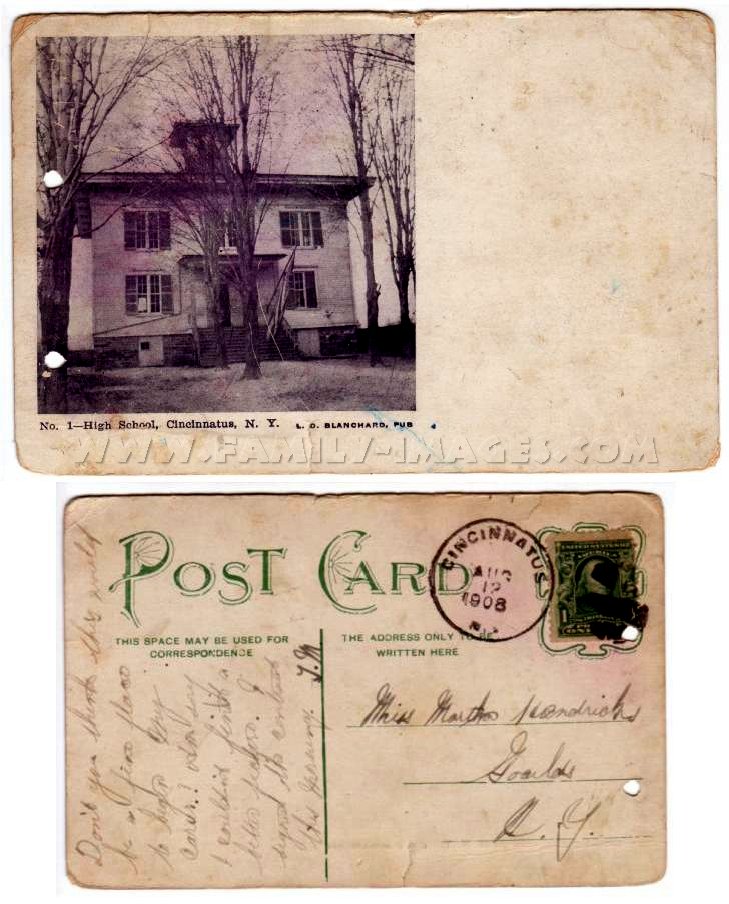 No. 1—High School, Cincinnatus, N. Y. L. O. BLANCHARD, PUB
WWW.FAMILY-IMAGES.COM
POST CARD
CINCINNATUS
AUG
12
1908
N.Y.
THIS SPACE MAY BE USED FOR
CORRESPONDENCE
THE ADDRESS ONLY TO BE
WRITTEN HERE
Don't you think this would
be a fine place
to begin my
career? Am very
I couldn't find a
better picture. I
signed the contract
this morning. J.M
Miss Martha Kendricks
Goulds
N. Y.